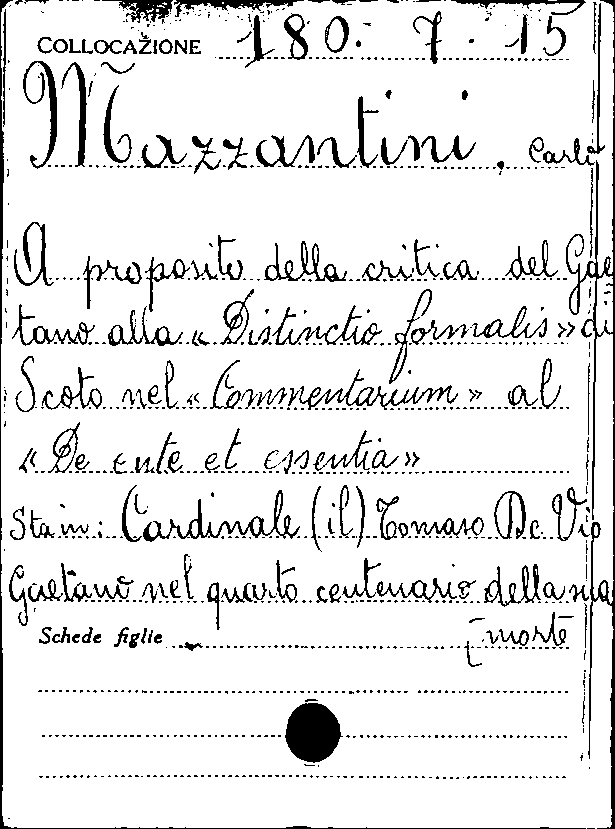 COLLOCAZIONE 180. 7. 15
Mazzantini, Carlo
A proposito della critica del Gae
tano alla « Distinctio formalis » di
Scoto nel « Commentarium » al
« De ente et essentia »
Sta in: Cardinale (il) Tomaso De Vio
Gaetano nel quarto centenario della sua
Schede figlie [morte